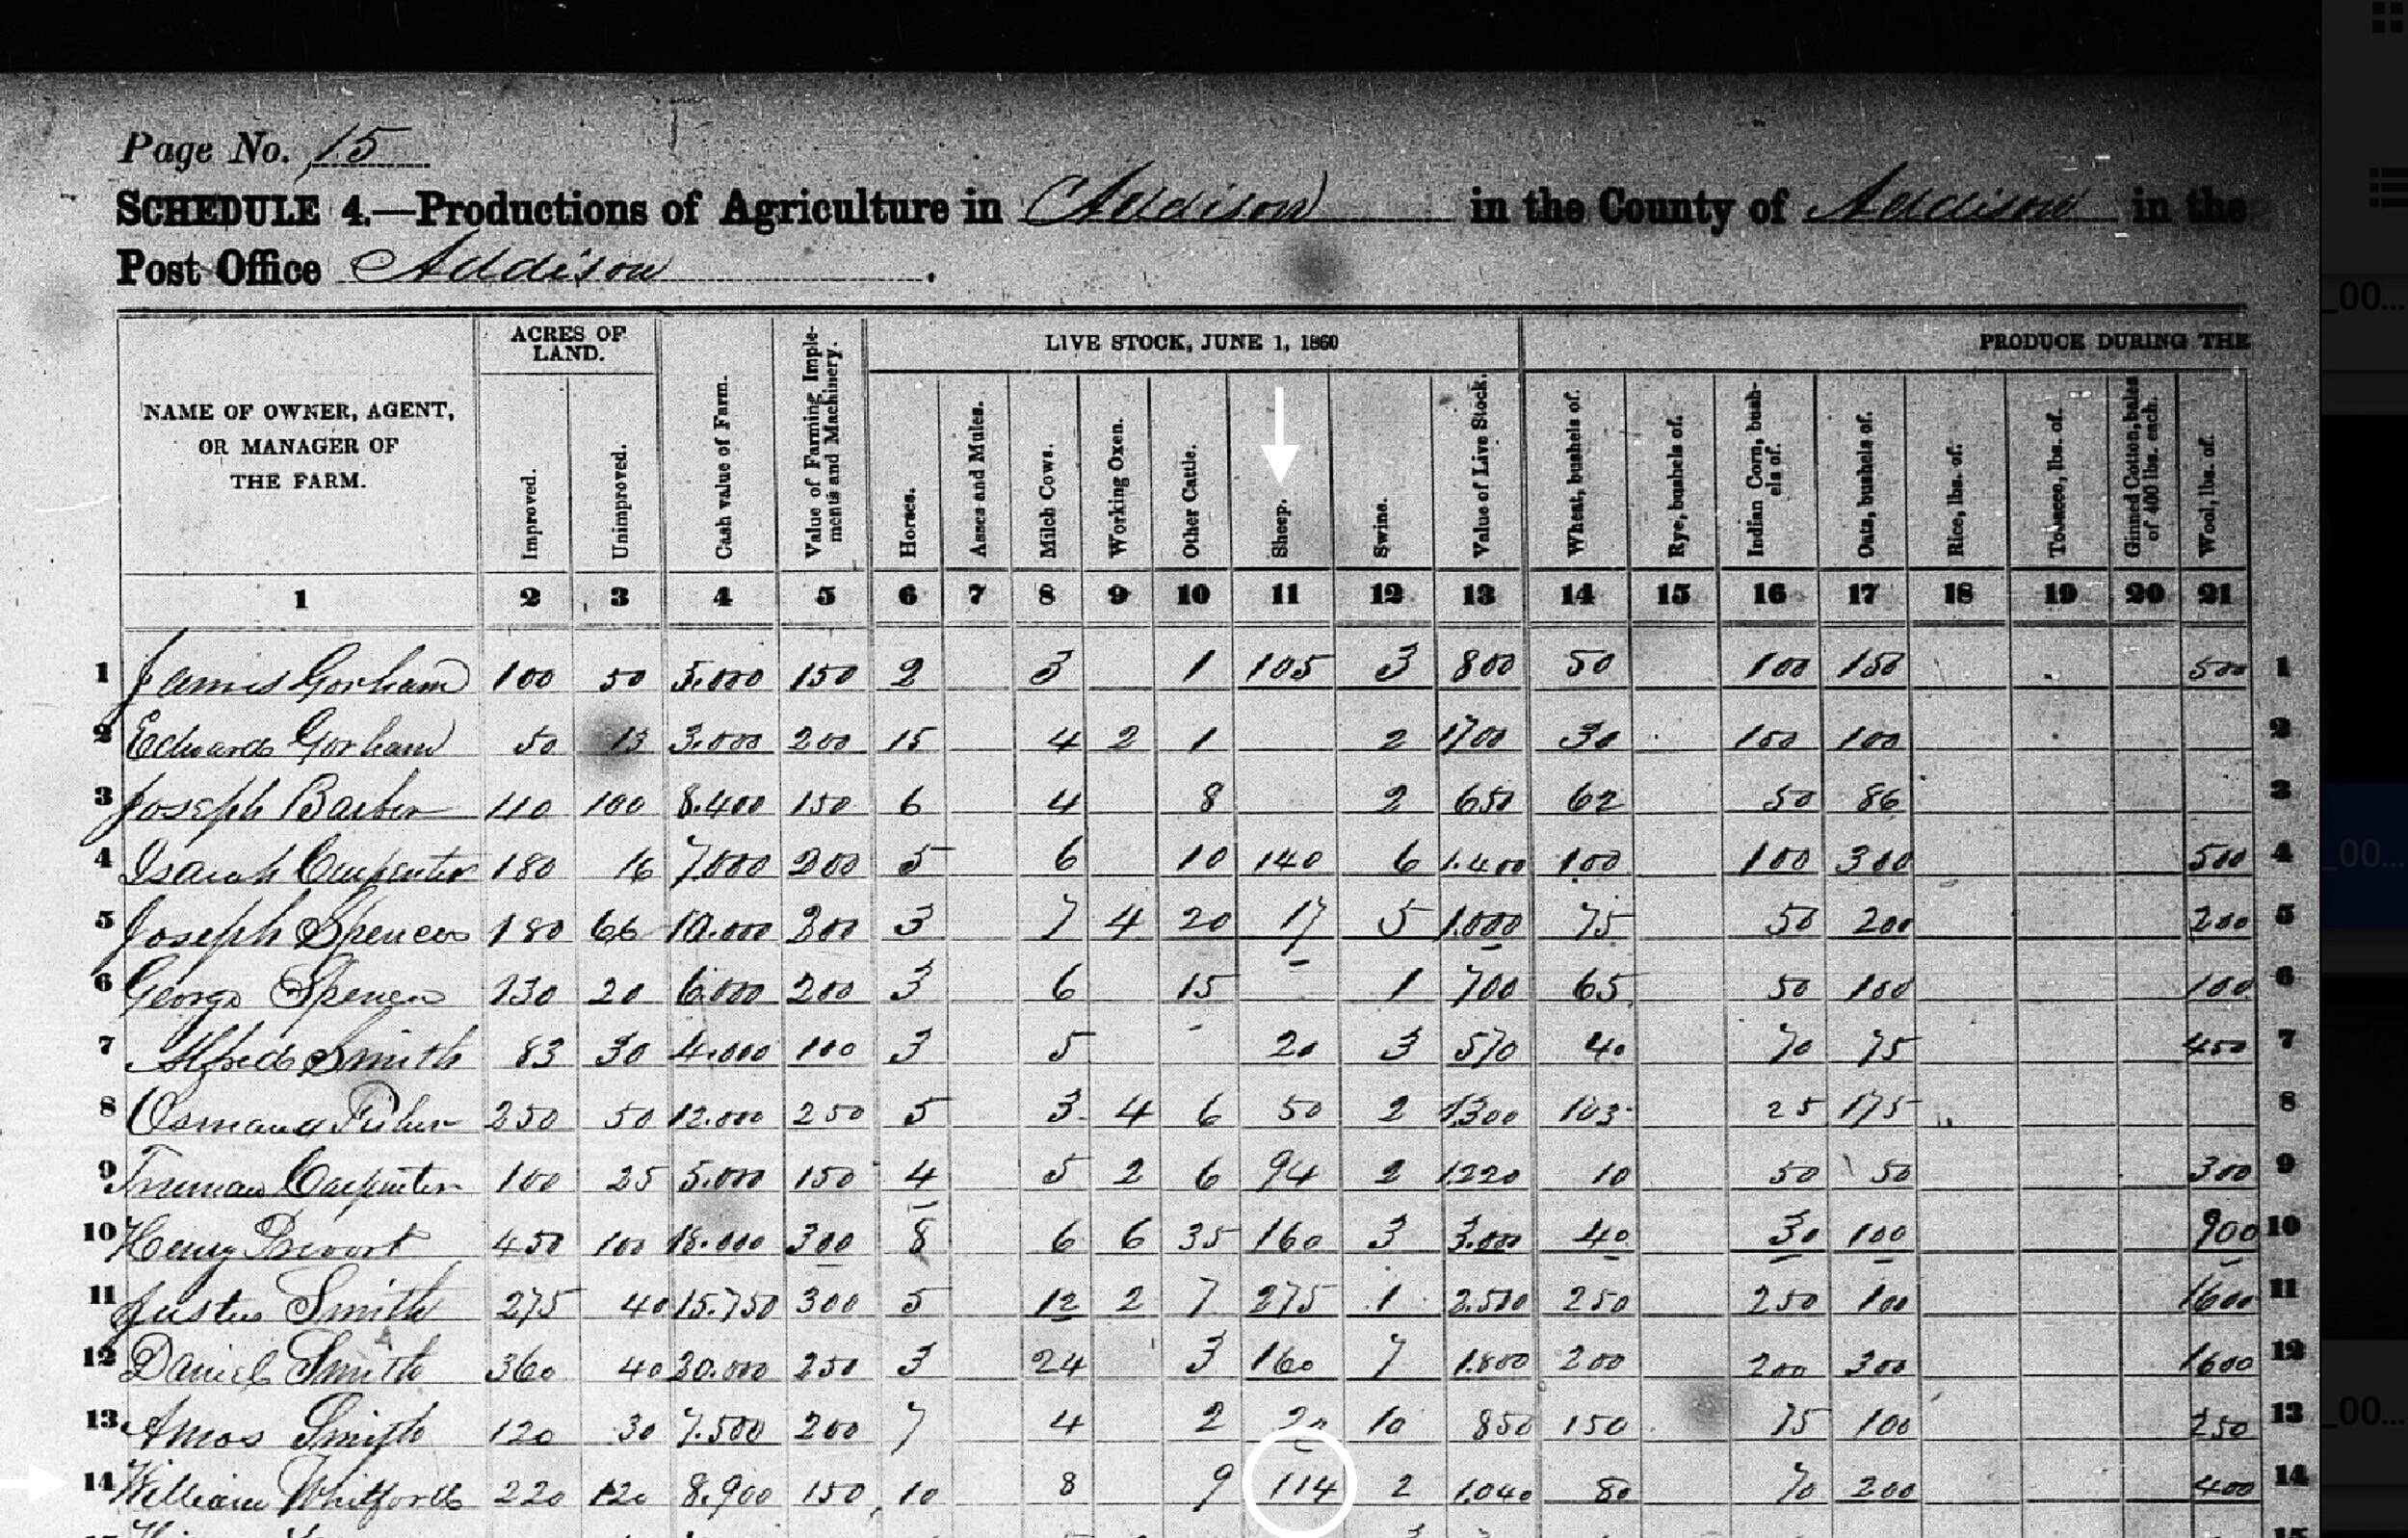 Page No. 15
SCHEDULE 4.—Productions of Agriculture in Addison in the County of Addison in the
Post Office Addison.
ACRES OF LAND. LIVE STOCK, JUNE 1, 1860 PRODUCE DURING THE
NAME OF OWNER, AGENT, OR MANAGER OF THE FARM. Improved. Unimproved. Cash value of Farm. Value of Farming Implements and Machinery. Horses. Asses and Mules. Milch Cows. Working Oxen. Other Cattle. Sheep. Swine. Value of Live Stock. Wheat, bushels of. Rye, bushels of. Indian Corn, bushels of. Oats, bushels of. Rice, lbs. of. Tobacco, lbs. of. Ginned Cotton, bales of 400 lbs. each. Wool, lbs. of.
1 2 3 4 5 6 7 8 9 10 11 12 13 14 15 16 17 18 19 20 21
1 James Gorham 100 50 5.000 150 2 3 1 105 3 800 50 100 150 500 1
2 Edward Gorham 50 13 3.000 200 15 4 2 1 2 1700 30 100 100 2
3 Joseph Barber 110 100 8.400 150 6 4 8 2 650 62 50 86 3
4 Isaiah Carpenter 180 16 7.000 200 5 6 10 140 6 1.400 100 100 300 500 4
5 Joseph Spencer 180 66 10.000 300 3 7 4 20 17 5 1.000 75 50 200 200 5
6 George Spencer 130 20 6.000 200 3 6 15 1 700 65 50 100 100 6
7 Alfred Smith 83 30 4.000 100 3 5 20 3 570 40 70 75 450 7
8 250 50 12.000 250 5 3 4 6 50 2 1300 103 25 175 8
9 Truman Carpenter 100 25 5.000 150 4 5 2 6 94 2 1220 10 50 50 300 9
10 Henry 450 100 18.000 300 8 6 6 35 160 3 3.000 40 30 100 900 10
11 Justus Smith 275 40 15.750 300 5 12 2 7 275 1 2.500 250 250 100 1600 11
12 Daniel Smith 360 40 20.000 250 3 24 3 160 7 1.800 200 200 300 1600 12
13 Amos Smith 120 30 7.500 200 7 4 2 20 10 850 150 75 100 250 13
14 William Whitford 220 120 8.900 150 10 8 9 114 2 1.040 80 70 200 400 14
_00...
_00...
_00...